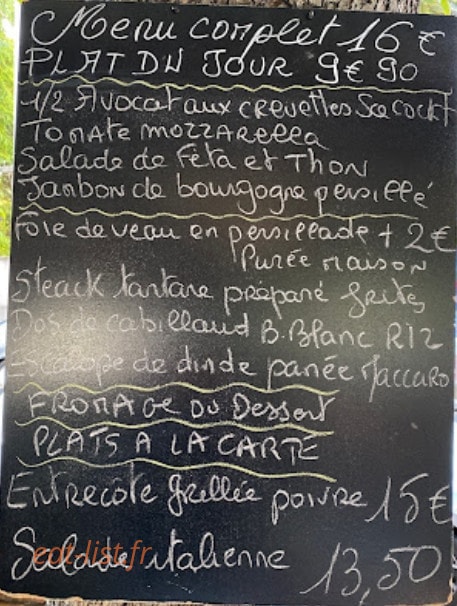 Menu complet 16 €
PLAT DU JOUR 9€90
1/2 Avocat aux crevettes Sce cockt
Tomate mozzarella
Salade de Féta et Thon
Jambon de bourgogne persillé
Foie de veau en persillade + 2€
Purée maison
Steack tartare préparé frites
Dos de cabillaud B. Blanc RIZ
Escalope de dinde panée Maccaro
FROMAGE OU Dessert
PLATS A LA CARTE
Entrecôte grillée poivre 15€
Salade italienne 13,50
eat-list.fr